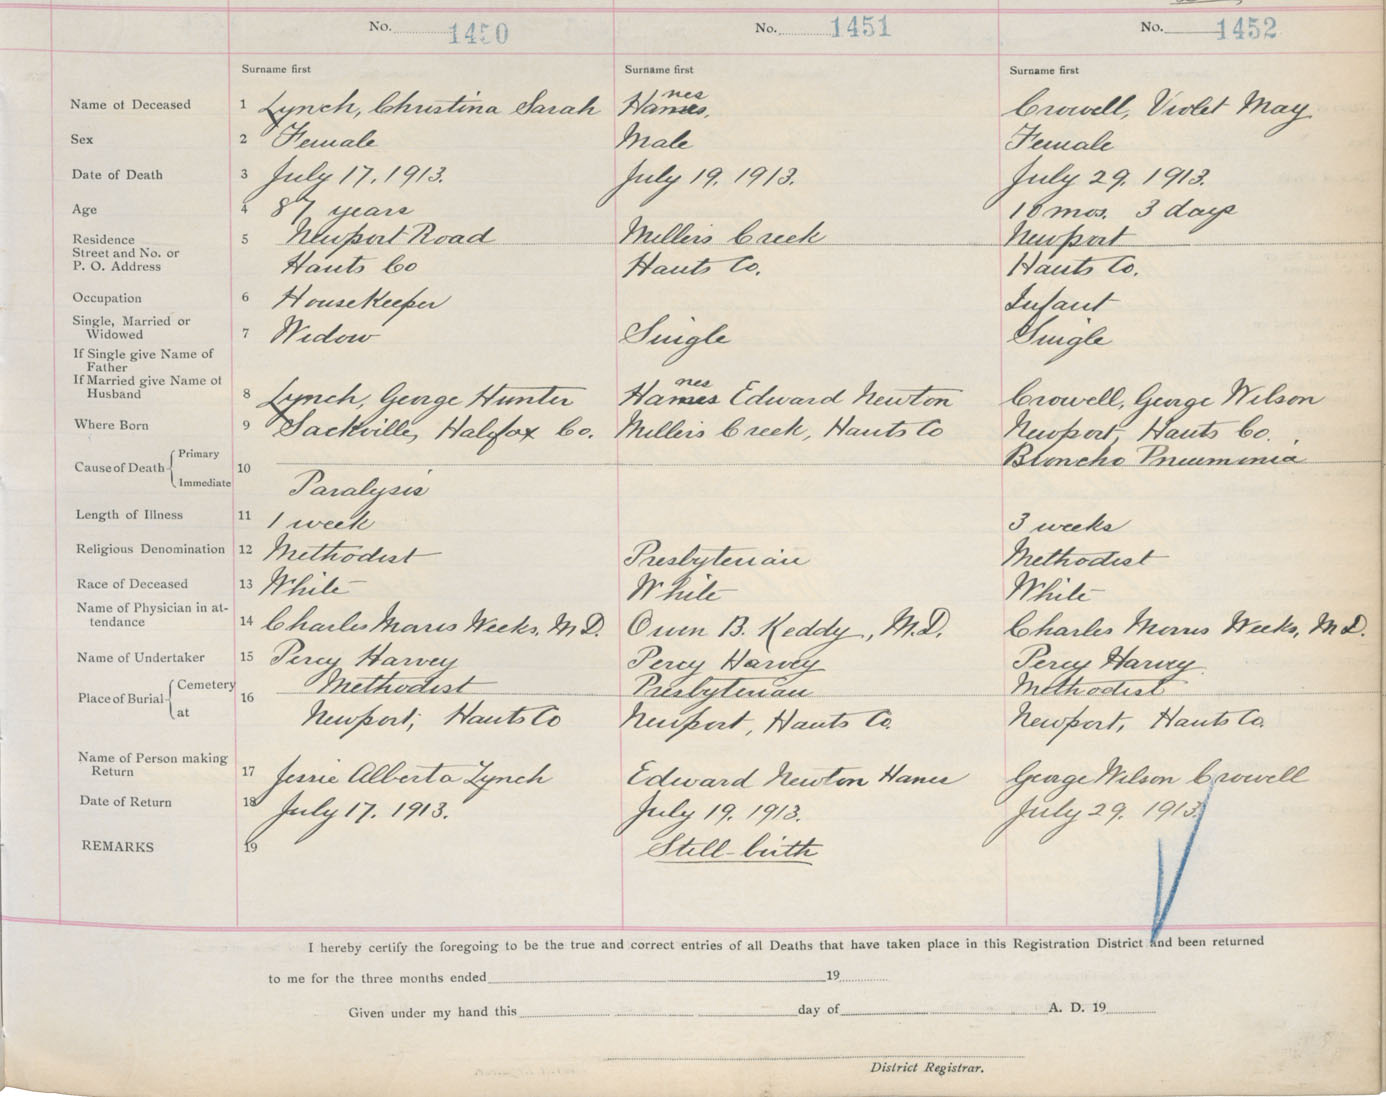 No. 1450 No. 1451 No. 1452
Surname first Surname first Surname first
Name of Deceased 1 Lynch, Christina Sarah Hanes, nes Crowell, Violet May
Sex 2 Female Male Female
Date of Death 3 July 17, 1913. July 19, 1913. July 29, 1913.
Age 4 87 years 10 mos. 3 days
Residence 5 Newport Road Millers Creek Newport
Street and No. or
P. O. Address Hants Co Hants Co. Hants Co.
Occupation 6 Housekeeper Infant
Single, Married or
Widowed 7 Widow Single Single
If Single give Name of
Father
If Married give Name of
Husband 8 Lynch, George Hunter Hanes nes Edward Newton Crowell, George Wilson
Where Born 9 Sackville, Halifax Co. Millers Creek, Hants Co Newport, Hants Co.
Cause of Death Primary 10 Broncho Pneumonia
Immediate Paralysis
Length of Illness 11 1 week 3 weeks
Religious Denomination 12 Methodist Presbyterian Methodist
Race of Deceased 13 White White White
Name of Physician in at-
tendance 14 Charles Morris Weeks, M.D. Owen B. Keddy, M.D. Charles Morris Weeks, M.D.
Name of Undertaker 15 Percy Harvey Percy Harvey Percy Harvey
Place of Burial Cemetery 16 Methodist Presbyterian Methodist
at Newport, Hants Co Newport, Hants Co. Newport, Hants Co.
Name of Person making
Return 17 Jessie Alberta Lynch Edward Newton Hanes George Wilson Crowell
Date of Return 18 July 17, 1913. July 19, 1913. July 29, 1913.
REMARKS 19 Still-birth
I hereby certify the foregoing to be the true and correct entries of all Deaths that have taken place in this Registration District and been returned
to me for the three months ended 19
Given under my hand this day of A. D. 19
District Registrar.